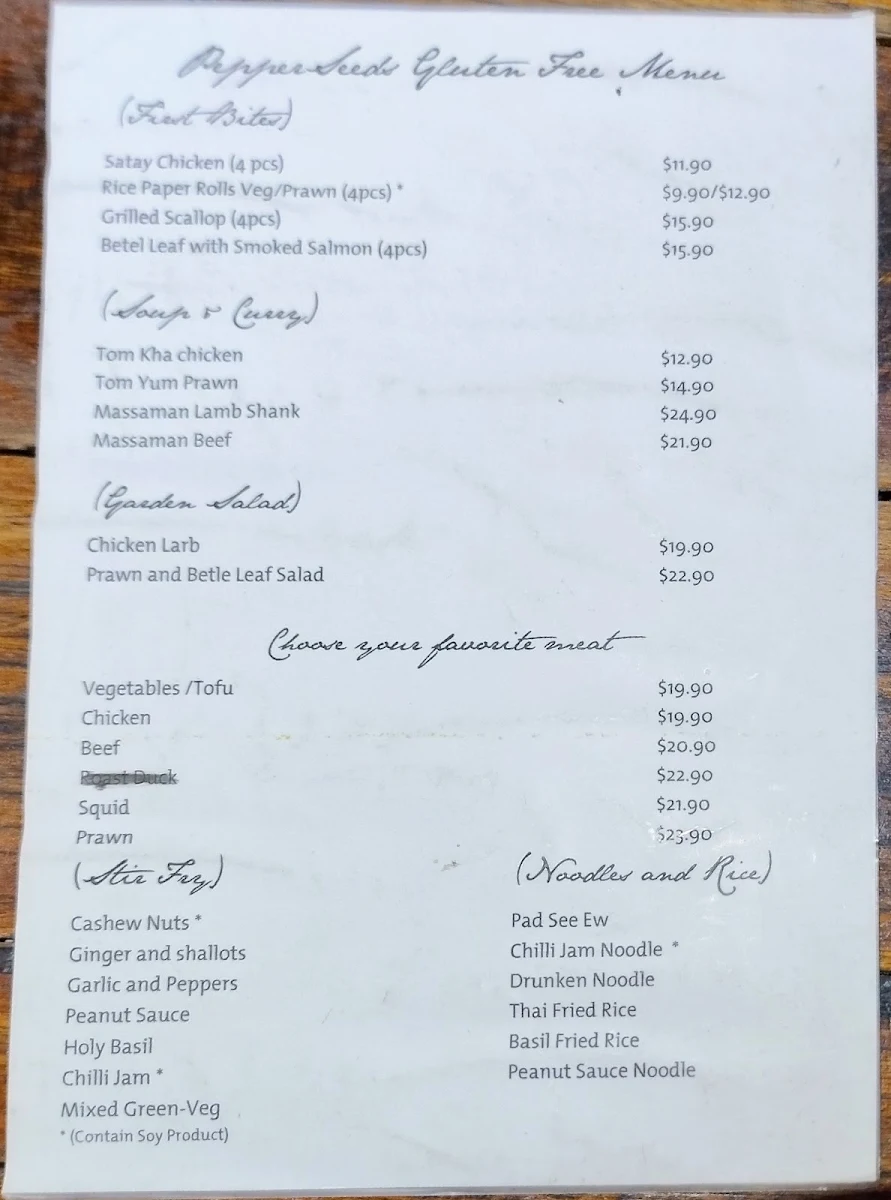 PepperSeeds Gluten Free Menu
(First Bites)
Satay Chicken (4 pcs) $11.90
Rice Paper Rolls Veg/Prawn (4pcs) * $9.90/$12.90
Grilled Scallop (4pcs) $15.90
Betel Leaf with Smoked Salmon (4pcs) $15.90
(Soup & Curry)
Tom Kha chicken $12.90
Tom Yum Prawn $14.90
Massaman Lamb Shank $24.90
Massaman Beef $21.90
(Garden Salad)
Chicken Larb $19.90
Prawn and Betle Leaf Salad $22.90
Choose your favorite meat
Vegetables /Tofu $19.90
Chicken $19.90
Beef $20.90
Roast Duck $22.90
Squid $21.90
Prawn $23.90
(Stir Fry)
Cashew Nuts *
Ginger and shallots
Garlic and Peppers
Peanut Sauce
Holy Basil
Chilli Jam *
Mixed Green-Veg
* (Contain Soy Product)
(Noodles and Rice)
Pad See Ew
Chilli Jam Noodle *
Drunken Noodle
Thai Fried Rice
Basil Fried Rice
Peanut Sauce Noodle